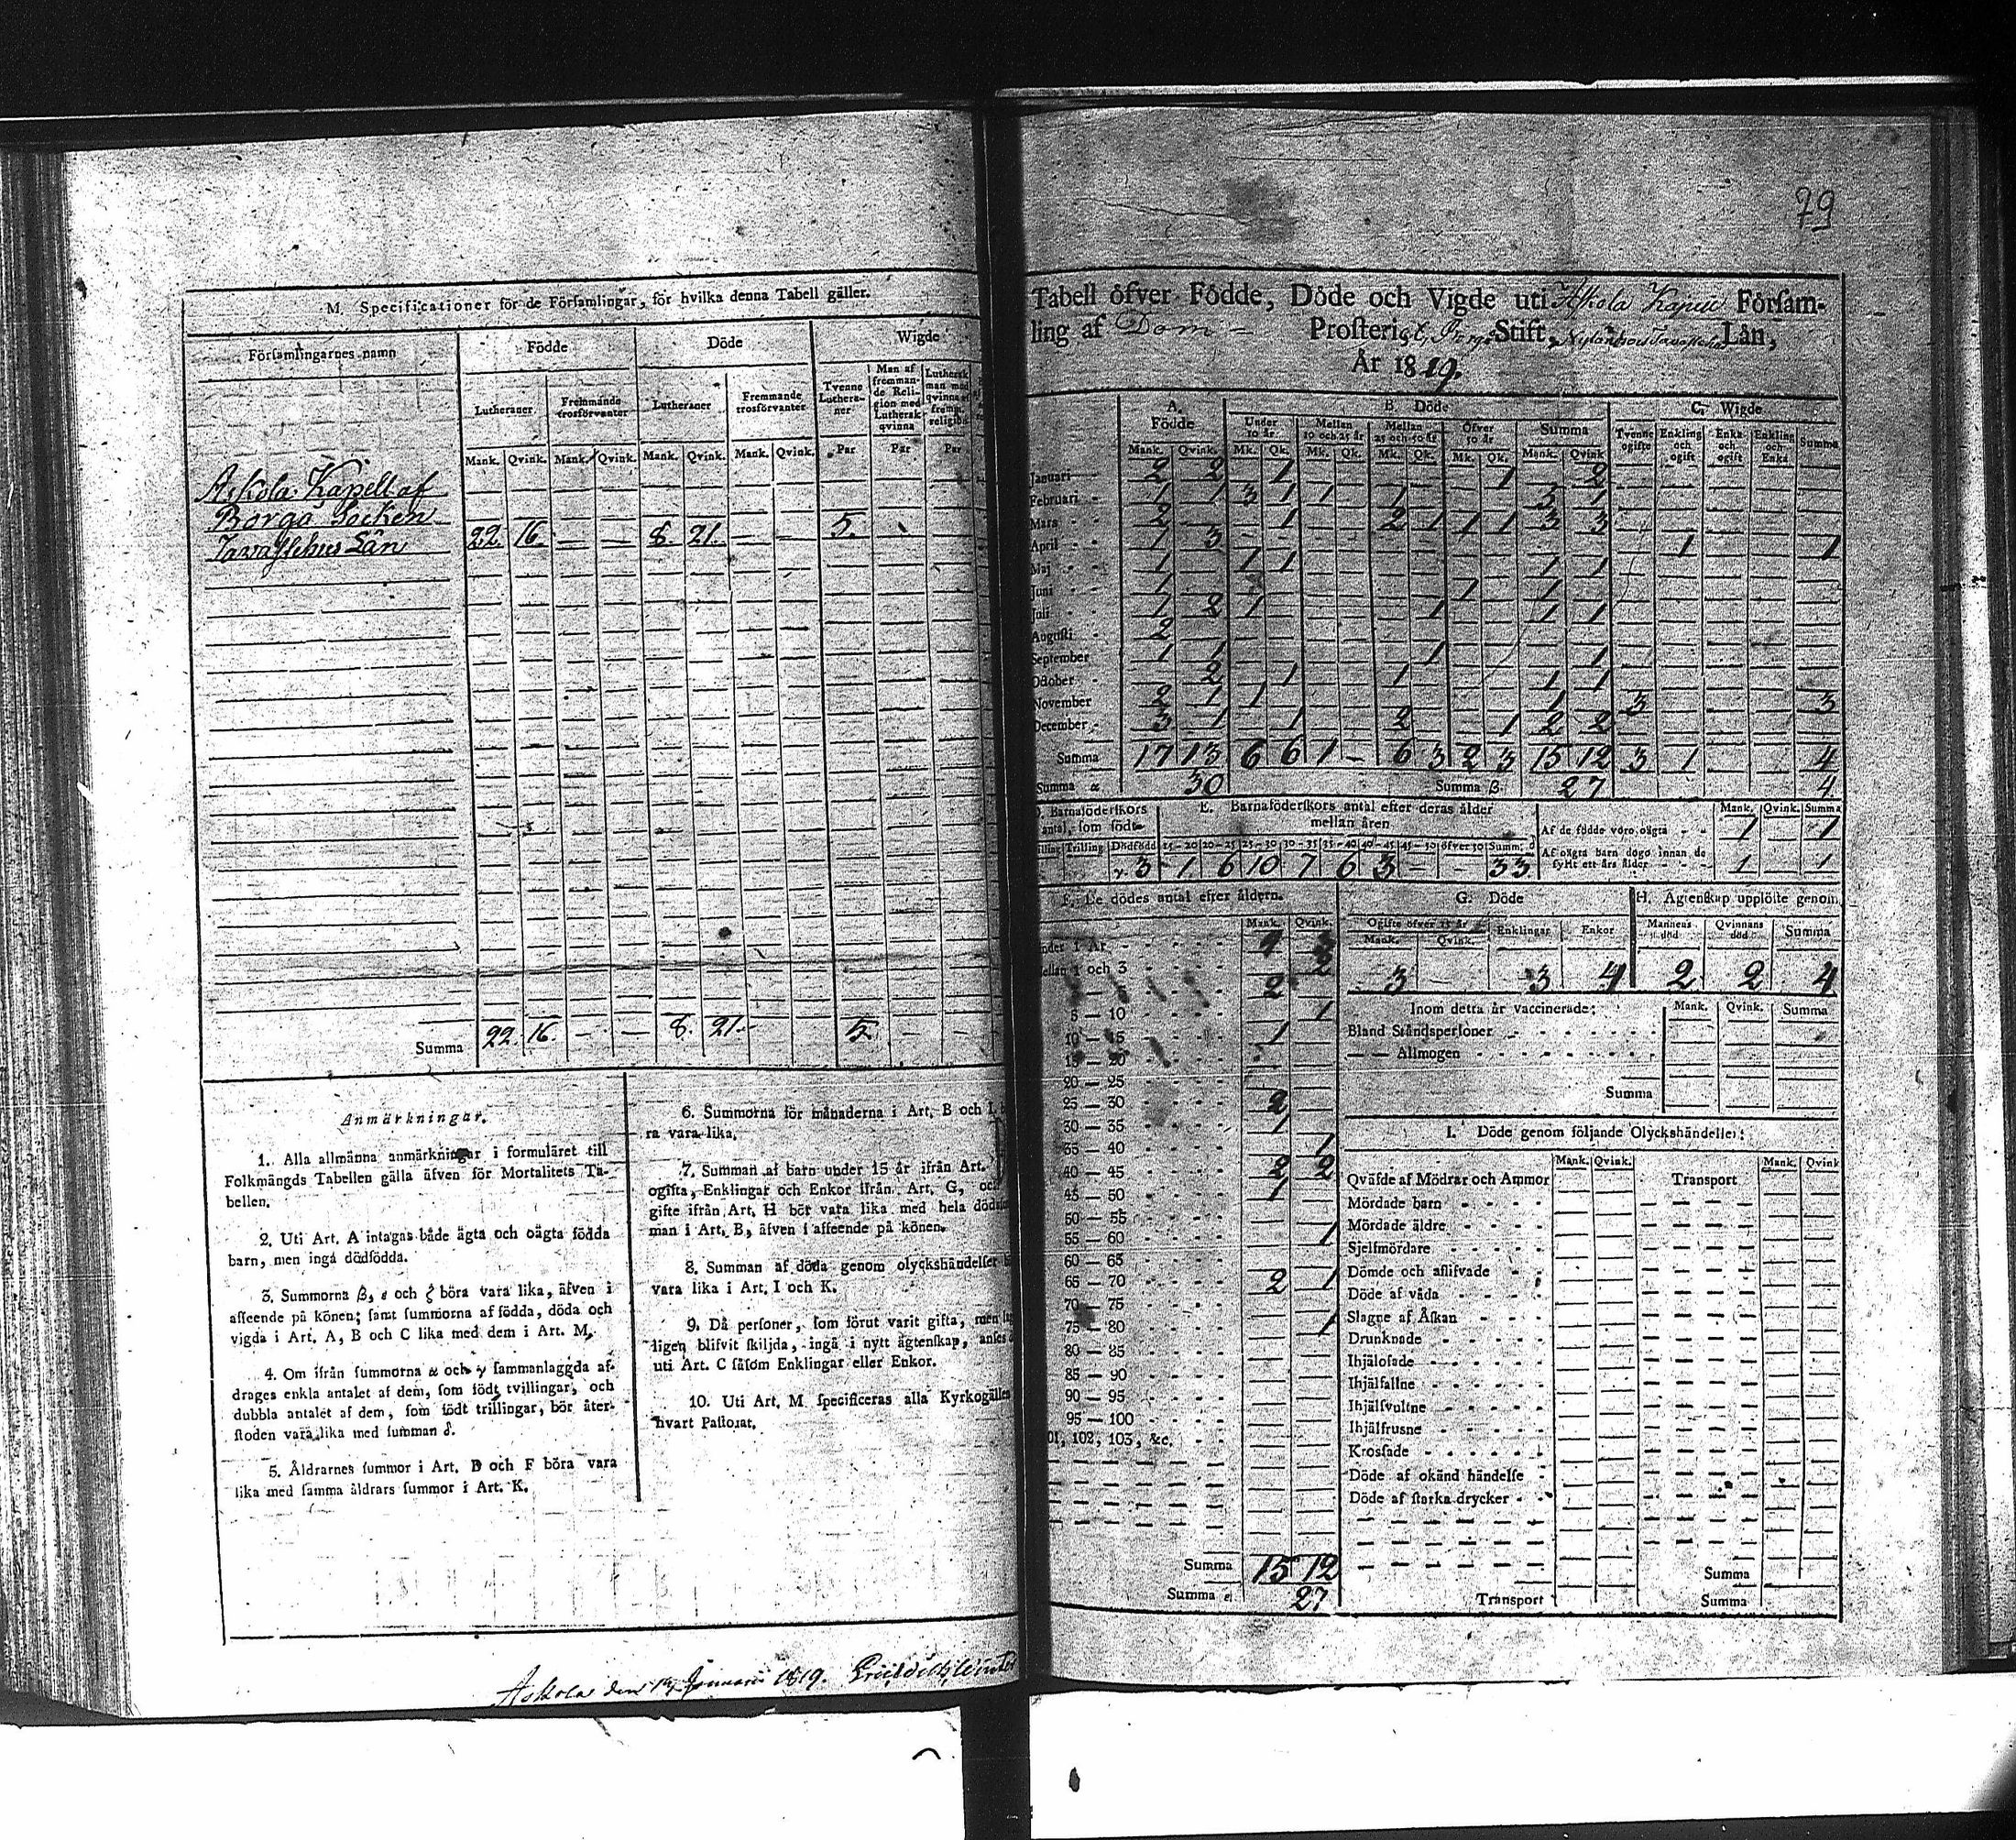 M. Specificationer för de Församlingar, för hvilka denna Tabell gäller.
Församlingarnes namn Födde Döde Wigde
Lutheraner Fremmande trosförvanter Lutheraner Fremmande trosförvanter Tvenne Lutheraner Man af fremmande Religion med Luthersk qvinna Luthersk man med qvinna af främ. religion
Mank. Qvink. Mank. Qvink. Mank. Qvink. Mank. Qvink. Par Par Par
Askola Kapell af
Borgå Socken
Tavastehus Län 22. 16. — — 8. 21. — — 5.
Summa 22. 16. — — 8. 21. 5. — —
Anmärkningar.
1. Alla allmänna anmärkningar i formuläret till
Folkmängds Tabellen gälla äfven för Mortalitets Ta-
bellen.
2. Uti Art. A intagas både ägta och oägta födda
barn, men ingå dödfödda.
3. Summorna β, ε och ζ böra vara lika, äfven i
afseende på könen; samt summorna af födda, döda och
vigda i Art. A, B och C lika med dem i Art. M.
4. Om ifrån summorna α och γ sammanlaggda af-
drages enkla antalet af dem, som födt tvillingar, och
dubbla antalet af dem, som födt trillingar, bör åter-
stoden vara lika med summan δ.
5. Åldrarnes summor i Art. B och F böra vara
lika med samma åldrars summor i Art. K.
6. Summorna för månaderna i Art. B och L
ra vara lika.
7. Summan af barn under 15 år ifrån Art.
ogifta, Enklingar och Enkor ifrån Art. G, och
gifte ifrån Art. H bör vara lika med hela
man i Art. B, äfven i afseende på könen.
8. Summan af döda genom olyckshändelser
vara lika i Art. I och K.
9. Då personer, som förut varit gifta, men
ligen blifvit skiljda, ingå i nytt ägtenskap, anses
uti Art. C såsom Enklingar eller Enkor.
10. Uti Art. M specificeras alla Kyrkogällen
hvart Pastorat.
Askola den Januari 1819.
79
Tabell öfver Födde, Döde och Vigde uti Askola Kapell Försam-
ling af Dom- Prosteri, Borgå Stift, Nylands o Tavastehus Län,
År 1819.
A. Födde B. Döde C. Wigde
Under 10 år Mellan 10 och 25 år Mellan 25 och 50 år Öfver 50 år Summa Tvenne ogifte Enkling och ogift Enka och ogift Enkling och Enka Summa
Mank. Qvink. Mk. Qk. Mk. Qk. Mk. Qk. Mk. Qk. Mank. Qvink
Januari 2 2 1 1 2
Februari 1 1 3 1 1 1 5 1
Mars 2 1 2 1 1 1 3 3
April 1 3 1 1
Maj 1 1 1 1
Juni 1 1 1
Juli 1 2 1 1 1 1
Augusti 2
September 1 1 1 1
October 2 1 1 1 1
November 2 1 1 1 3 3
December 3 1 1 2 1 2 2
Summa 17 13 6 6 1 — 6 3 2 3 15 12 3 1 4
Summa α 30 Summa β. 27 4.
D. Barnaföderskors antal, som födt E. Barnaföderskors antal efter deras ålder mellan åren Mank. Qvink. Summa
Trilling Dödfödd 15–20 20–25 25–30 30–35 35–40 40–45 45–50 öfver 50 Summ. δ
γ 3 1 6 10 7 6 3 — — 33
Af de födde voro oägta 1 1
Af oägta barn dogo innan de fyllt ett års ålder 1 1
F. De dödes antal efter åldern. G. Döde H. Ägtenskap upplöste genom
Mank. Qvink. Ogifte öfver 15 år Enklingar Enkor Mannens död Qvinnans död Summa
Mank. Qvink.
3 — 3 4 2 2 4
1 och 3
5 — 10 1
10 — 15 1
15 — 20
20 — 25
25 — 30 2
30 — 35 1
35 — 40 1
40 — 45 2 2
45 — 50 1
50 — 55
55 — 60 1
60 — 65
65 — 70 2 1
70 — 75
75 — 80 1
80 — 85
85 — 90
90 — 95
95 — 100
101, 102, 103, &c.
Summa 15 12
Summa ε 27
Inom detta år vaccinerade: Mank. Qvink. Summa
Bland Ståndspersoner
— — Allmogen
Summa
I. Döde genom följande Olyckshändelser:
Mank. Qvink. Mank. Qvink
Qväfde af Mödrar och Ammor Transport
Mördade barn
Mördade äldre
Sjelfmördare
Dömde och aflifvade
Döde af våda
Slagne af Åskan
Drunknade
Ihjälosade
Ihjälfallne
Ihjälsvultne
Ihjälfrusne
Krossade
Döde af okänd händelse
Döde af starka drycker
Summa
Transport Summa